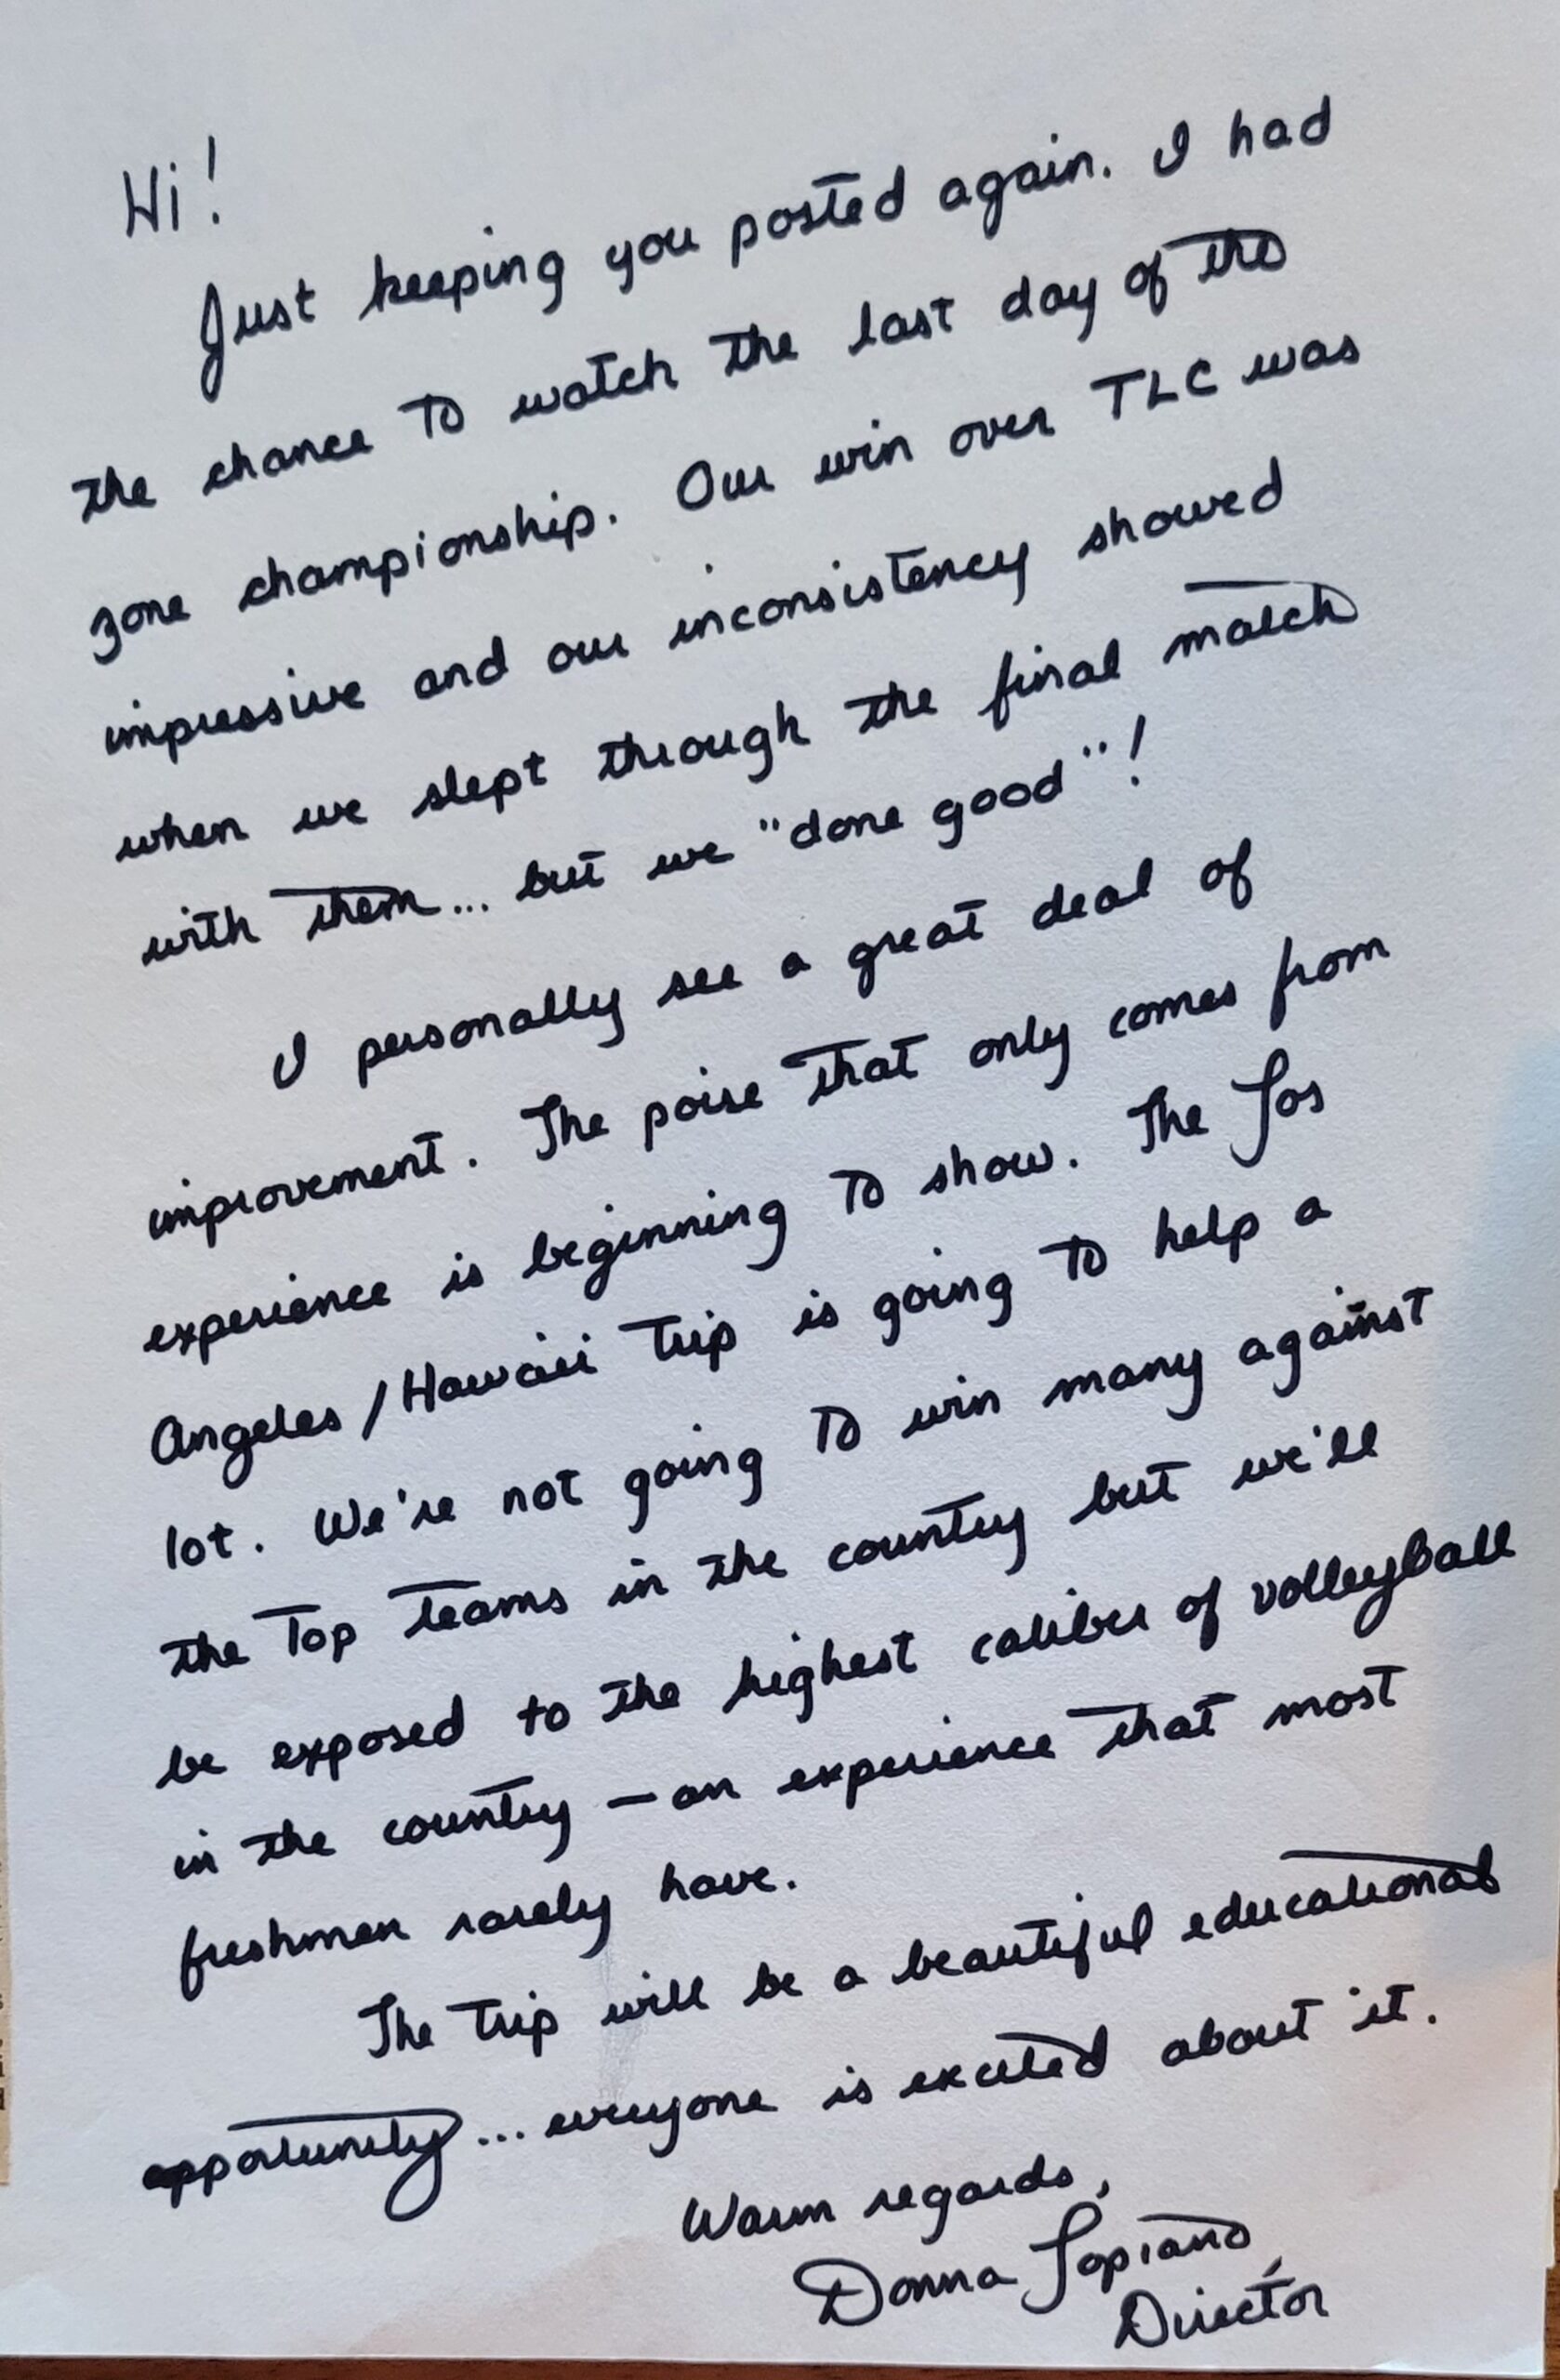 Hi!
Just keeping you posted again. I had
the chance to watch the last day of the
zone championship. Our win over TLC was
impressive and our inconsistency showed
when we slept through the final match
with them... but we "done good"!
I personally see a great deal of
improvement. The poise that only comes from
experience is beginning to show. The Los
Angeles/Hawaii trip is going to help a
lot. We're not going to win many against
the top teams in the country but we'll
be exposed to the highest caliber of volleyball
in the country - an experience that most
freshmen rarely have.
The trip will be a beautiful educational
opportunity... everyone is excited about it.
Warm regards,
Donna Lopiano,
Director